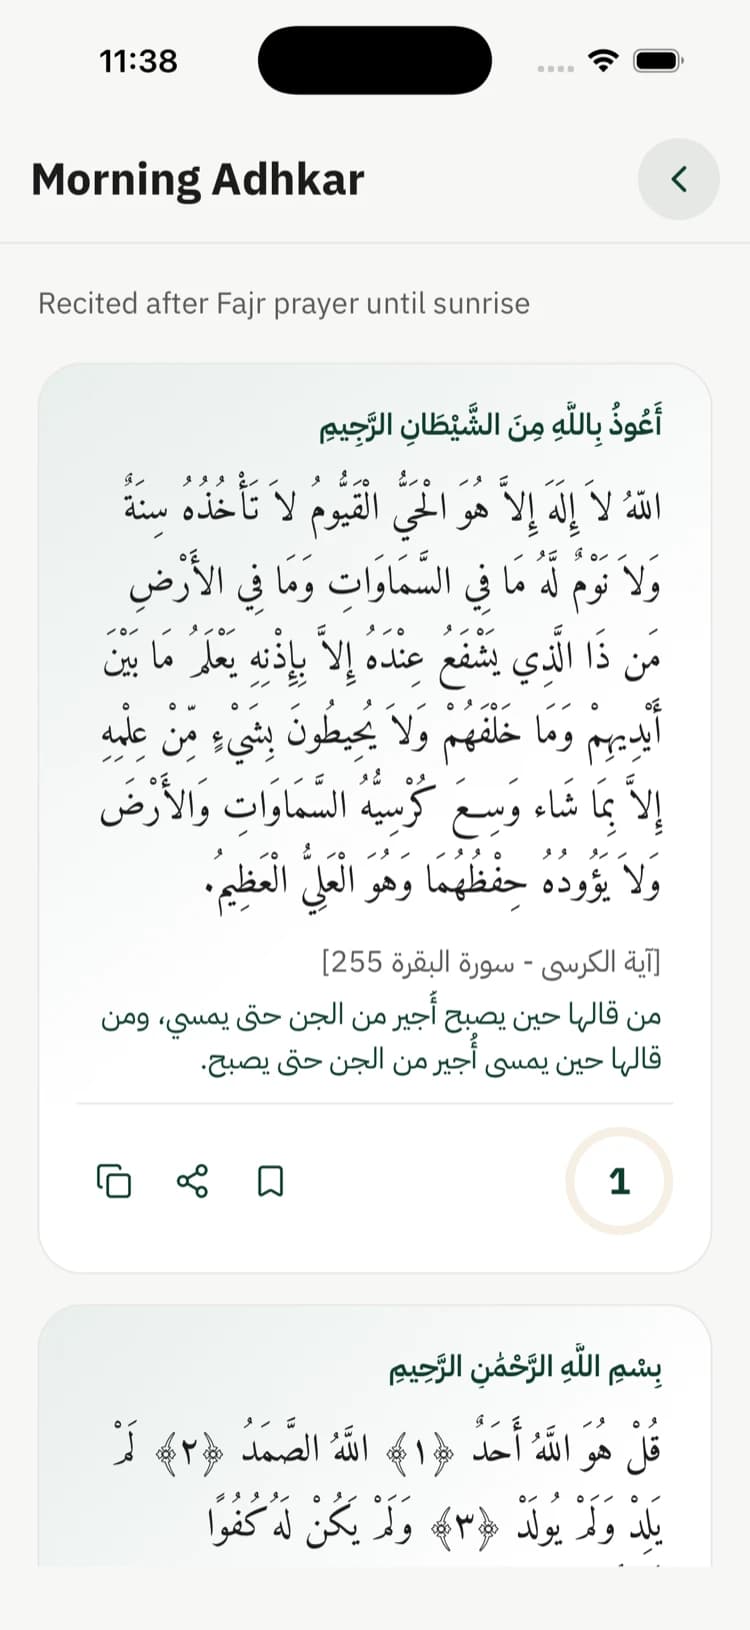 11:38
Morning Adhkar
Recited after Fajr prayer until sunrise
أَعُوذُ بِاللَّهِ مِنَ الشَّيْطَانِ الرَّجِيمِ
اللّهُ لاَ إِلَهَ إِلاَّ هُوَ الْحَيُّ الْقَيُّومُ لاَ تَأْخُذُهُ سِنَةٌ
وَلاَ نَوْمٌ لَّهُ مَا فِي السَّمَاوَاتِ وَمَا فِي الأَرْضِ
مَن ذَا الَّذِي يَشْفَعُ عِنْدَهُ إِلاَّ بِإِذْنِهِ يَعْلَمُ مَا بَيْنَ
أَيْدِيهِمْ وَمَا خَلْفَهُمْ وَلاَ يُحِيطُونَ بِشَيْءٍ مِّنْ عِلْمِهِ
إِلاَّ بِمَا شَاء وَسِعَ كُرْسِيُّهُ السَّمَاوَاتِ وَالأَرْضَ
وَلاَ يَؤُودُهُ حِفْظُهُمَا وَهُوَ الْعَلِيُّ الْعَظِيمُ.
[آية الكرسى - سورة البقرة 255]
من قالها حين يصبح أُجير من الجن حتى يمسي، ومن
قالها حين يمسى أُجير من الجن حتى يصبح.
1
بِسْمِ اللَّهِ الرَّحْمَٰنِ الرَّحِيمِ
قُلْ هُوَ اللَّهُ أَحَدٌ ﴿١﴾ اللَّهُ الصَّمَدُ ﴿٢﴾ لَمْ
يَلِدْ وَلَمْ يُولَدْ ﴿٣﴾ وَلَمْ يَكُنْ لَهُ كُفُوًا